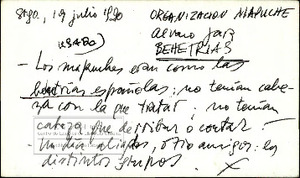 Stgo, 19 julio 1990
ORGANIZACION MAPUCHE
(USADO)
Alvaro Jara
BEHETRIAS
- Los mapuches eran como las
behetrias españolas; no tenían cabe-
za con la que tratar; no tenían
cabeza que derribar o cortar.
Un día aliados, otro amigos: los
distintos grupos.